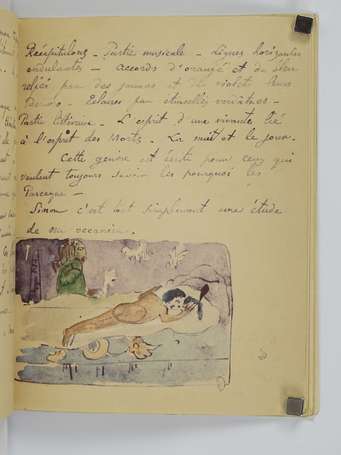 Récapitulons - Partie musicale - Lignes horizontales
ondulantes - accords d'orangé et de bleu
reliés par des jaunes et des violets leurs
dérivés. Eclairés par étincelles verdâtres -
Partie littéraire. L'esprit d'une vivante lié
à l'esprit des Morts. La nuit et le jour.
Cette genèse est écrite pour ceux qui
veulent toujours savoir les pourquoi les
parceque -
Sinon c'est tout simplement une étude
de nu océanien.